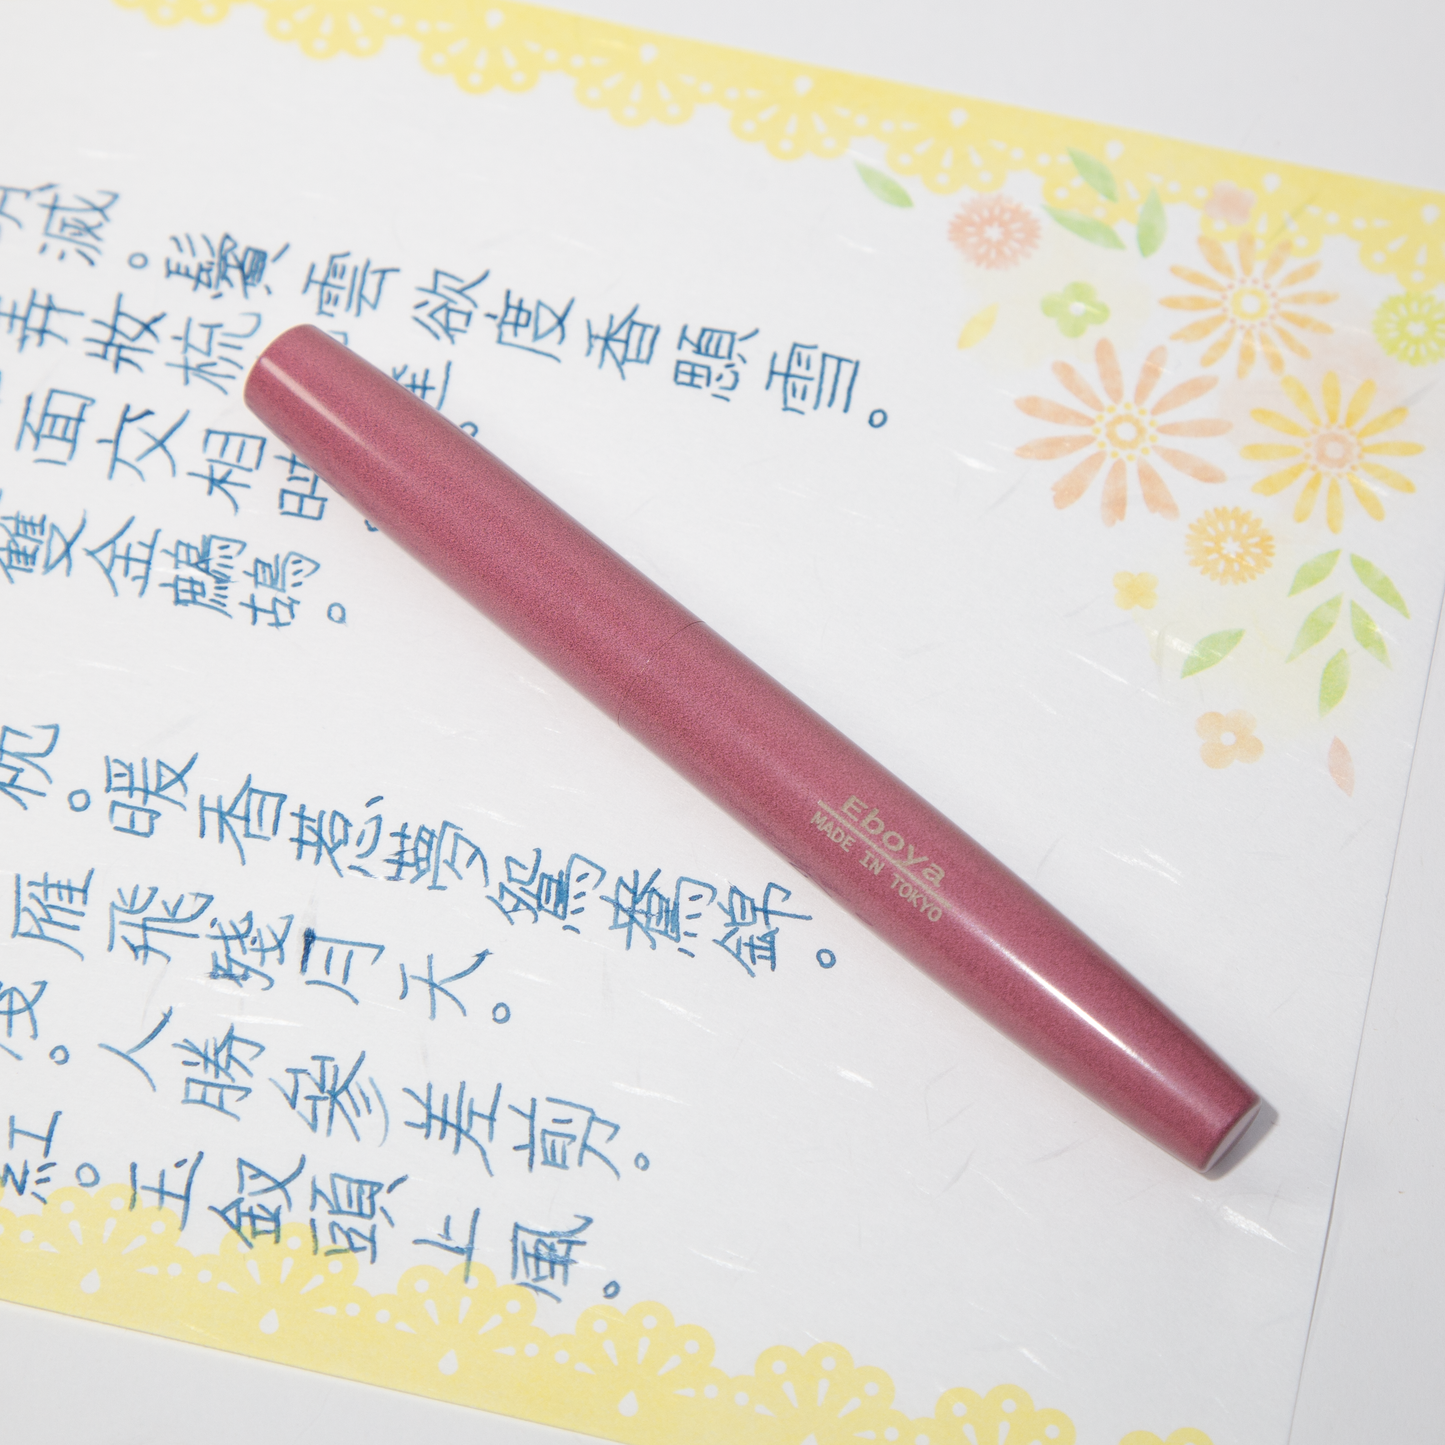 滅。鬢雲欲度香顋雪。
弄妝梳
面交相映
雙金鷓鴣。
枕。暖香惹夢鴛鴦錦。
雁飛殘月天。
。人勝參差剪。
紅。玉釵頭上風。
Eboya
MADE IN TOKYO